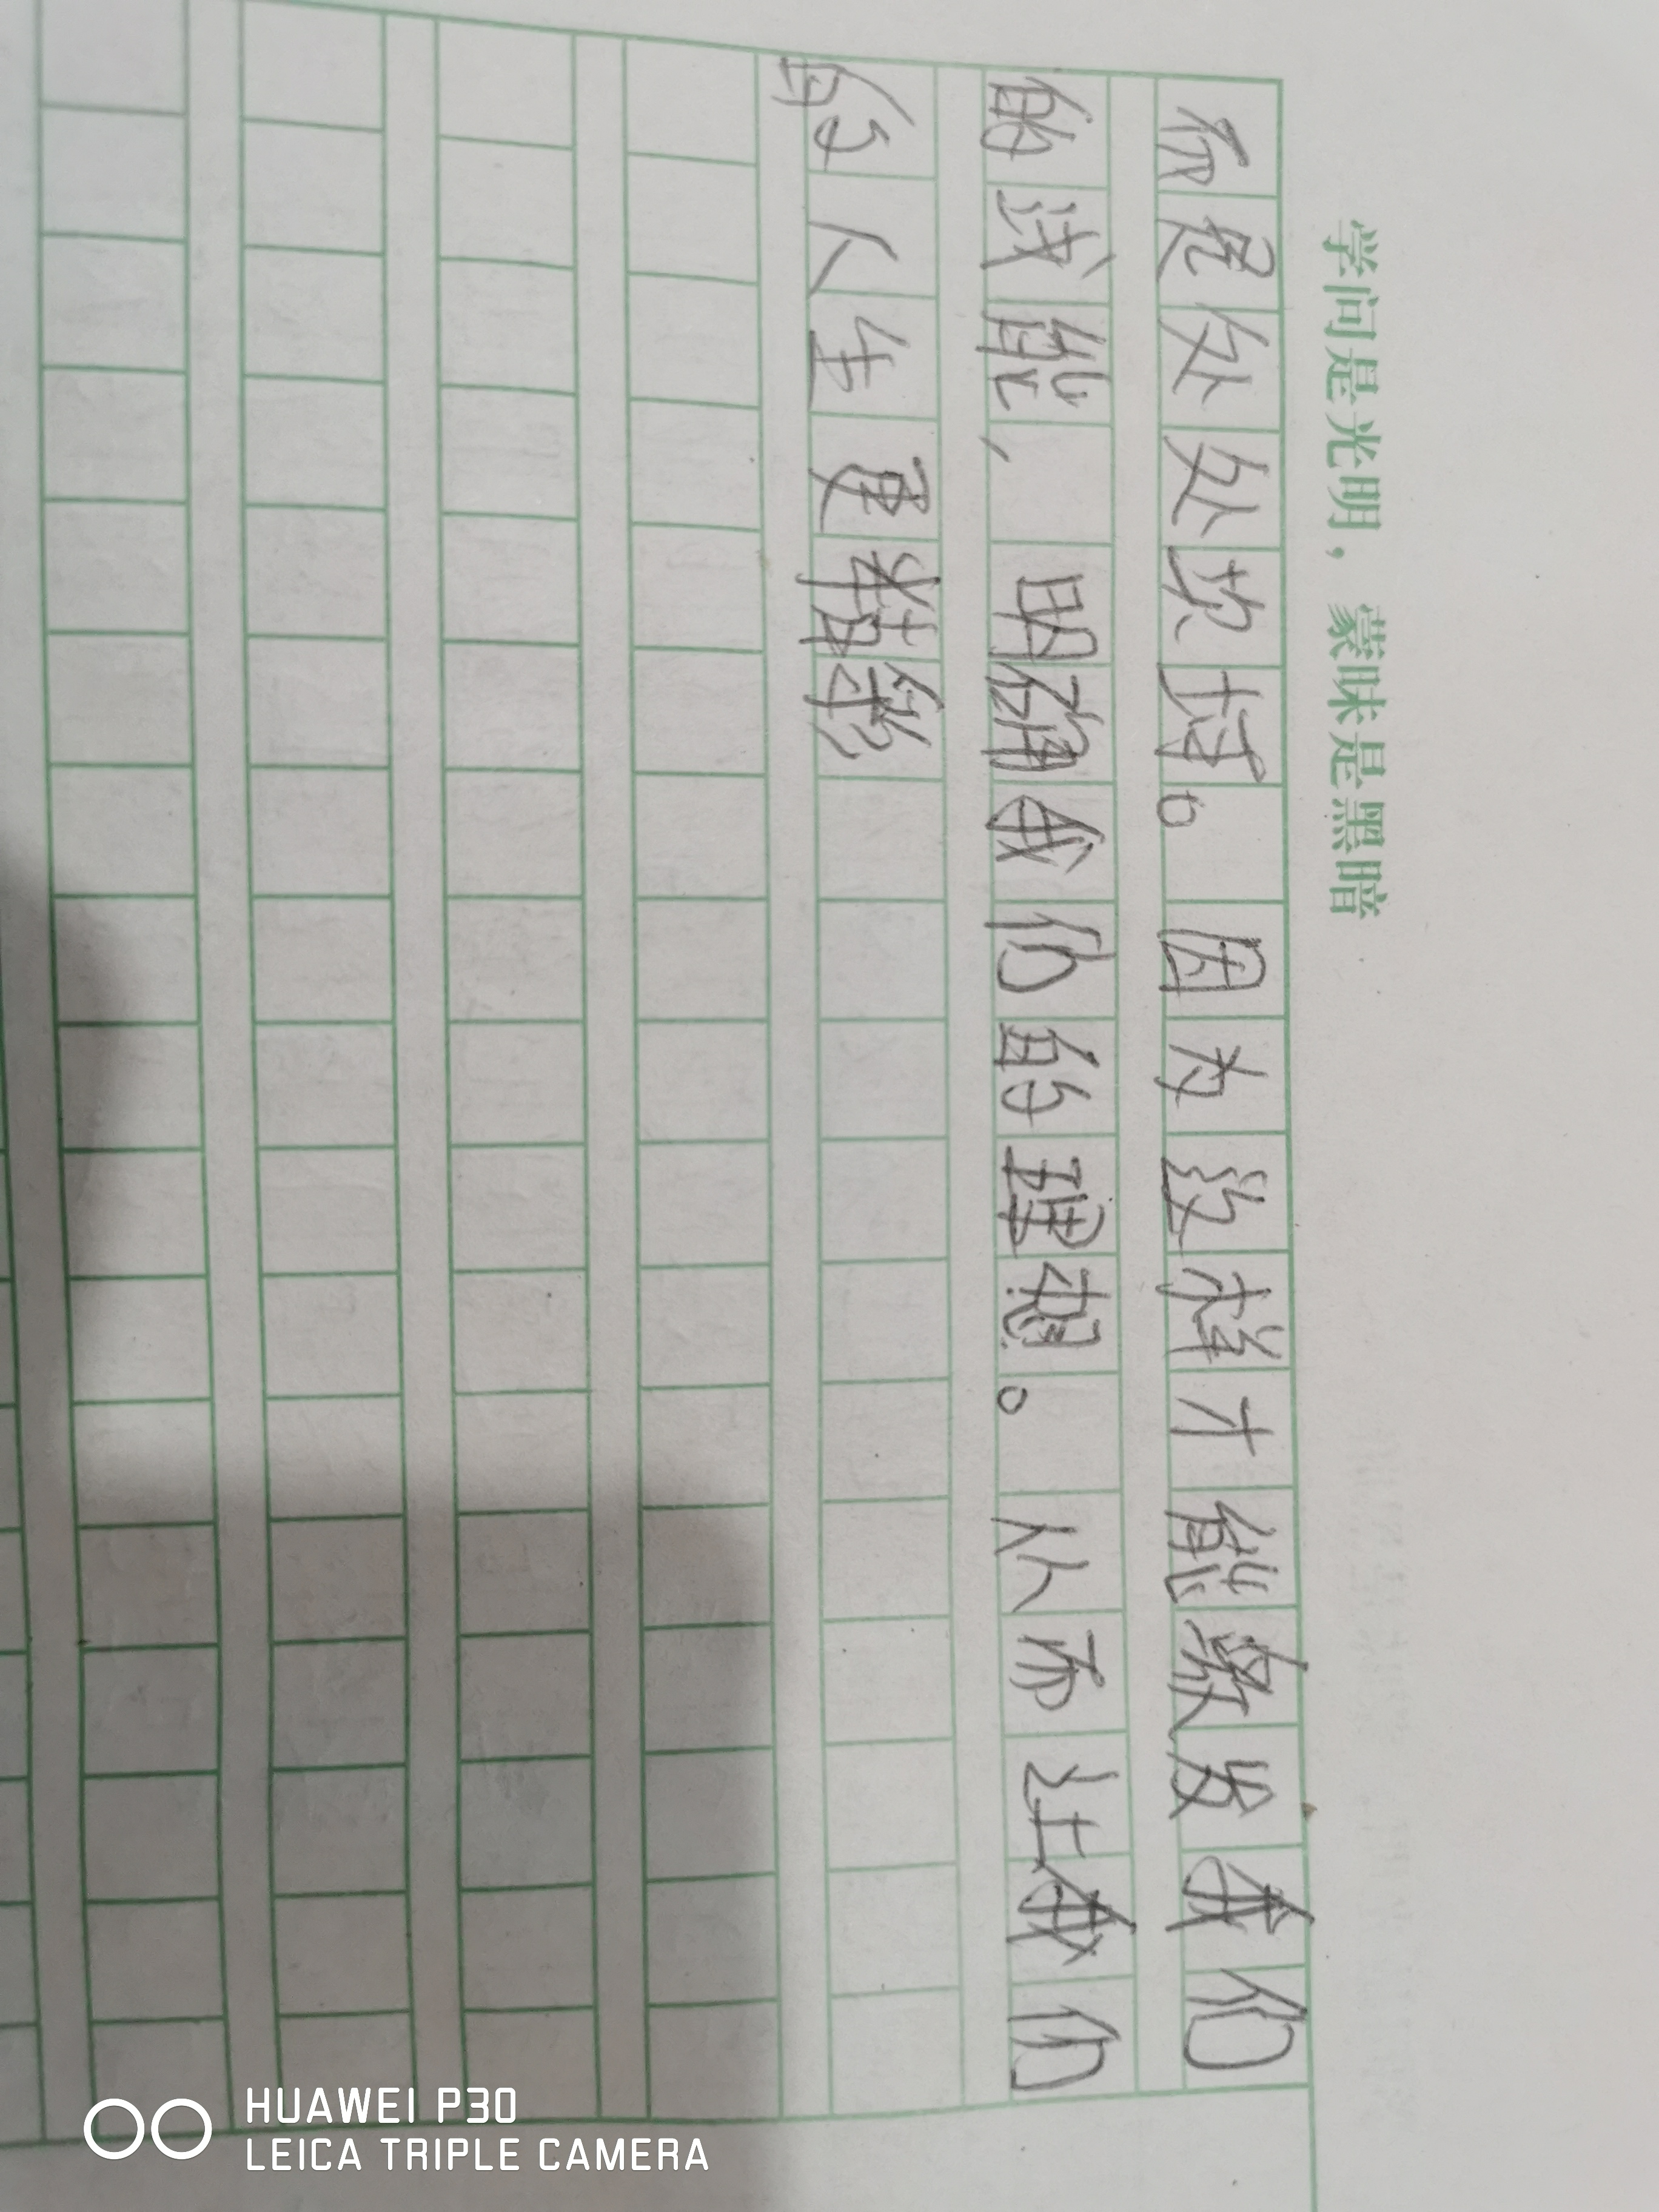 学问是光明，蒙昧是黑暗
而是处处坎坷。因为这样才能激发我们
的浅能，明确我们的理想。从而让我们
的人生更精彩
HUAWEI P30
LEICA TRIPLE CAMERA